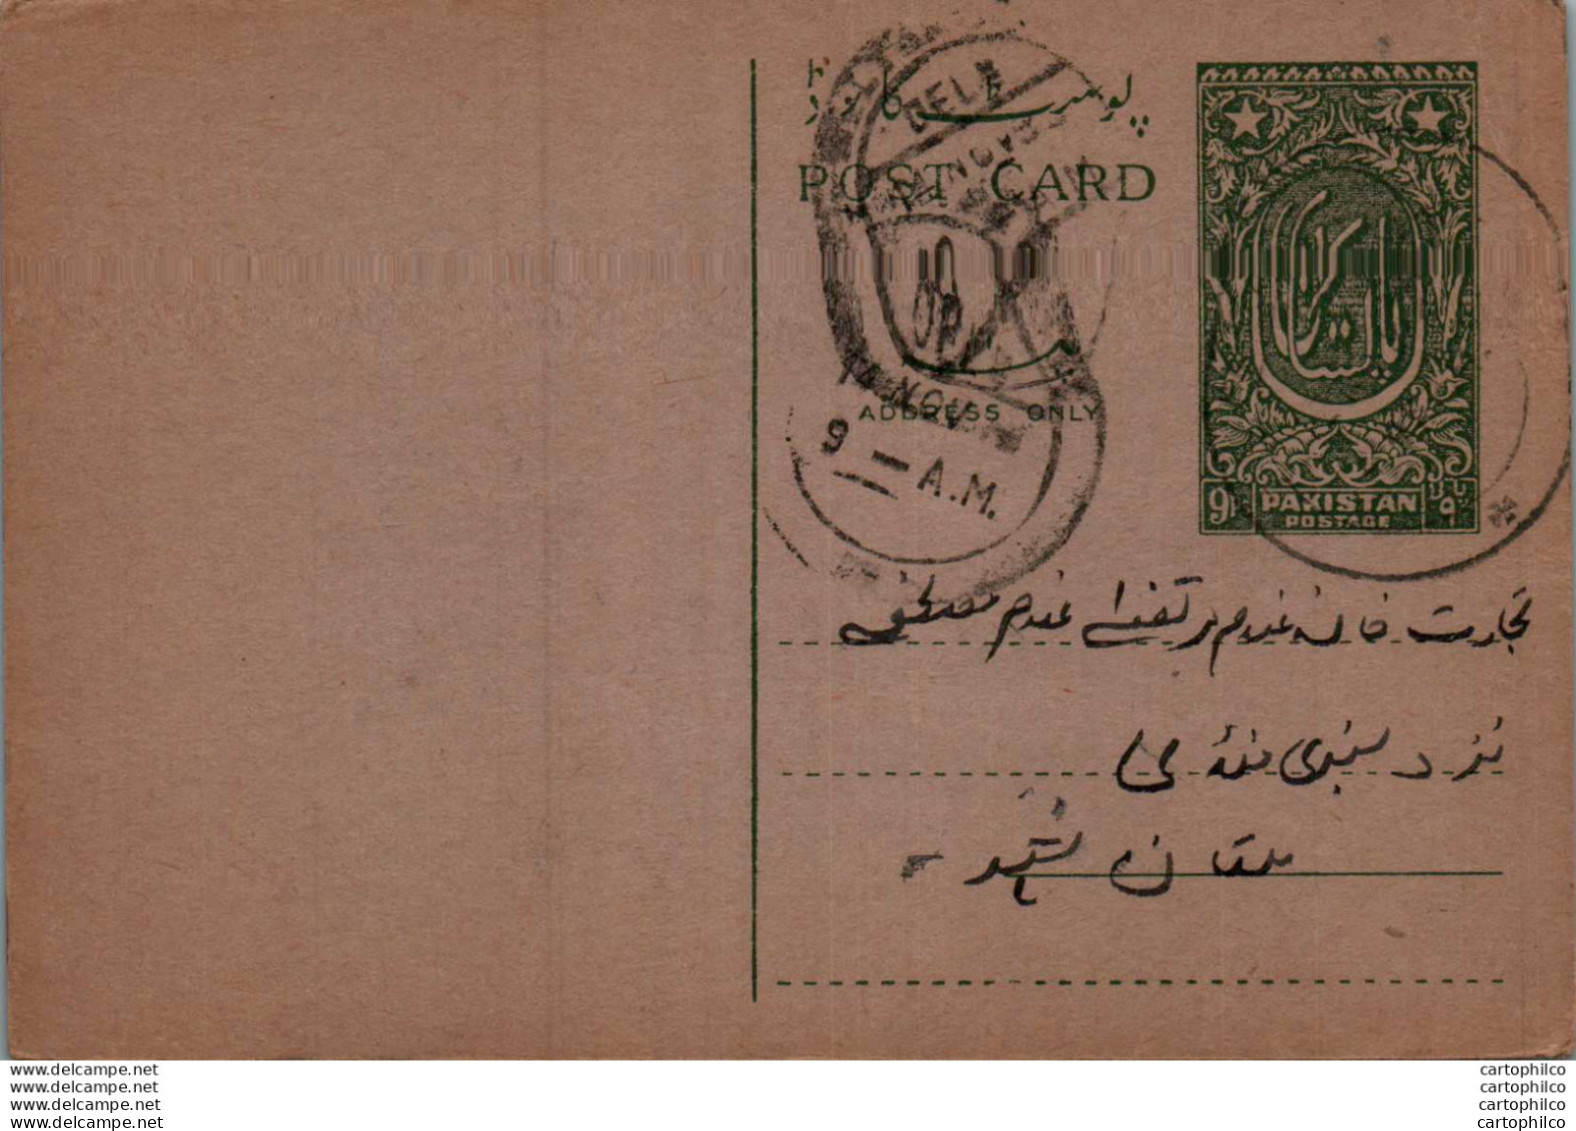 پوسٹ کارڈ
POST CARD
DELI
NOV
NOV
9 - A.M.
ADDRESS ONLY
پاکستان
9P
PAKISTAN
POSTAGE
تجارت خانہ غلام مرتضیٰ غلام مصطفیٰ
نزد سبزی منڈی
ملتان شہر
www.delcampe.net
www.delcampe.net
www.delcampe.net
www.delcampe.net
cartophilco
cartophilco
cartophilco
cartophilco